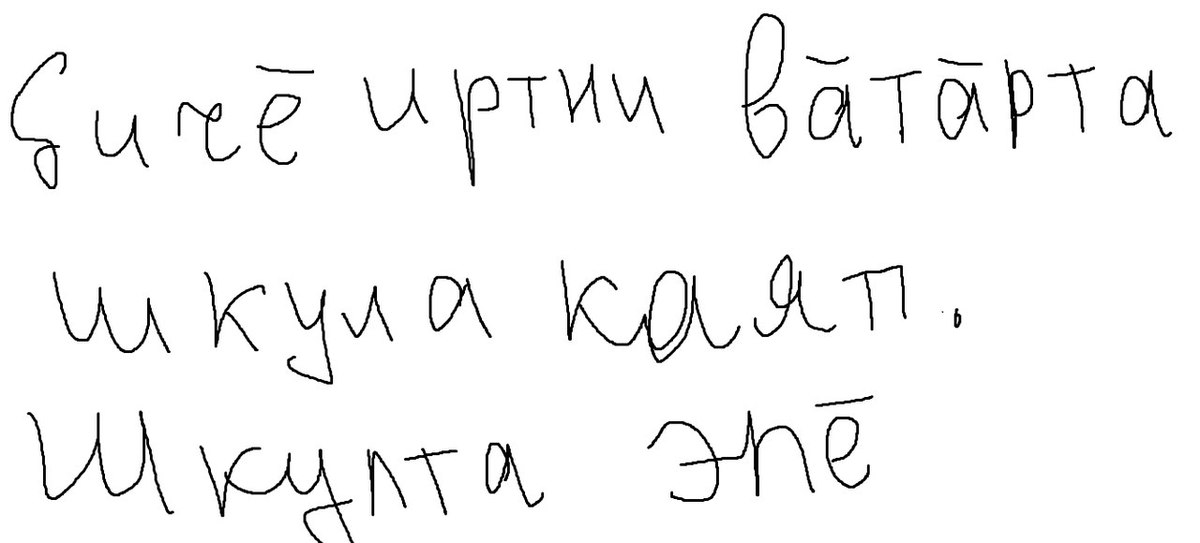 Ҫичӗ иртни вӑтӑрта
шкула каяп.
Шкулта эпӗ